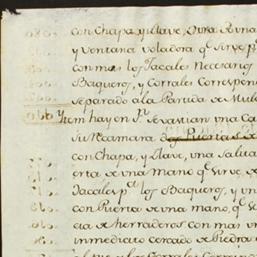 con Chapa y Llave, Otra
y Ventana voladora q.e sirve p.
con mas los Jacales Necesarios
Baqueros, y Corrales Correspon
separado a la Partida de Mul
Ytem hay en S.n Sevastian una Ca
su Recamara dos Puertas
con Chapa, y Llave, una Salita
erta de una mano q.e sirve de
Jacales p.a los Baqueros, y un
con Puerta de una mano, q.e
cia de herraderos con mas un
inmediato cercado de Piedra